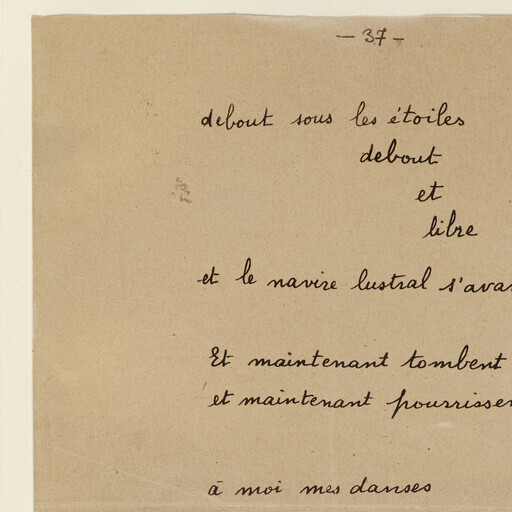 — 37 —
debout sous les étoiles
debout
et
libre
et le navire lustral s'avan
Et maintenant tombent
et maintenant pourrissen
à moi mes danses